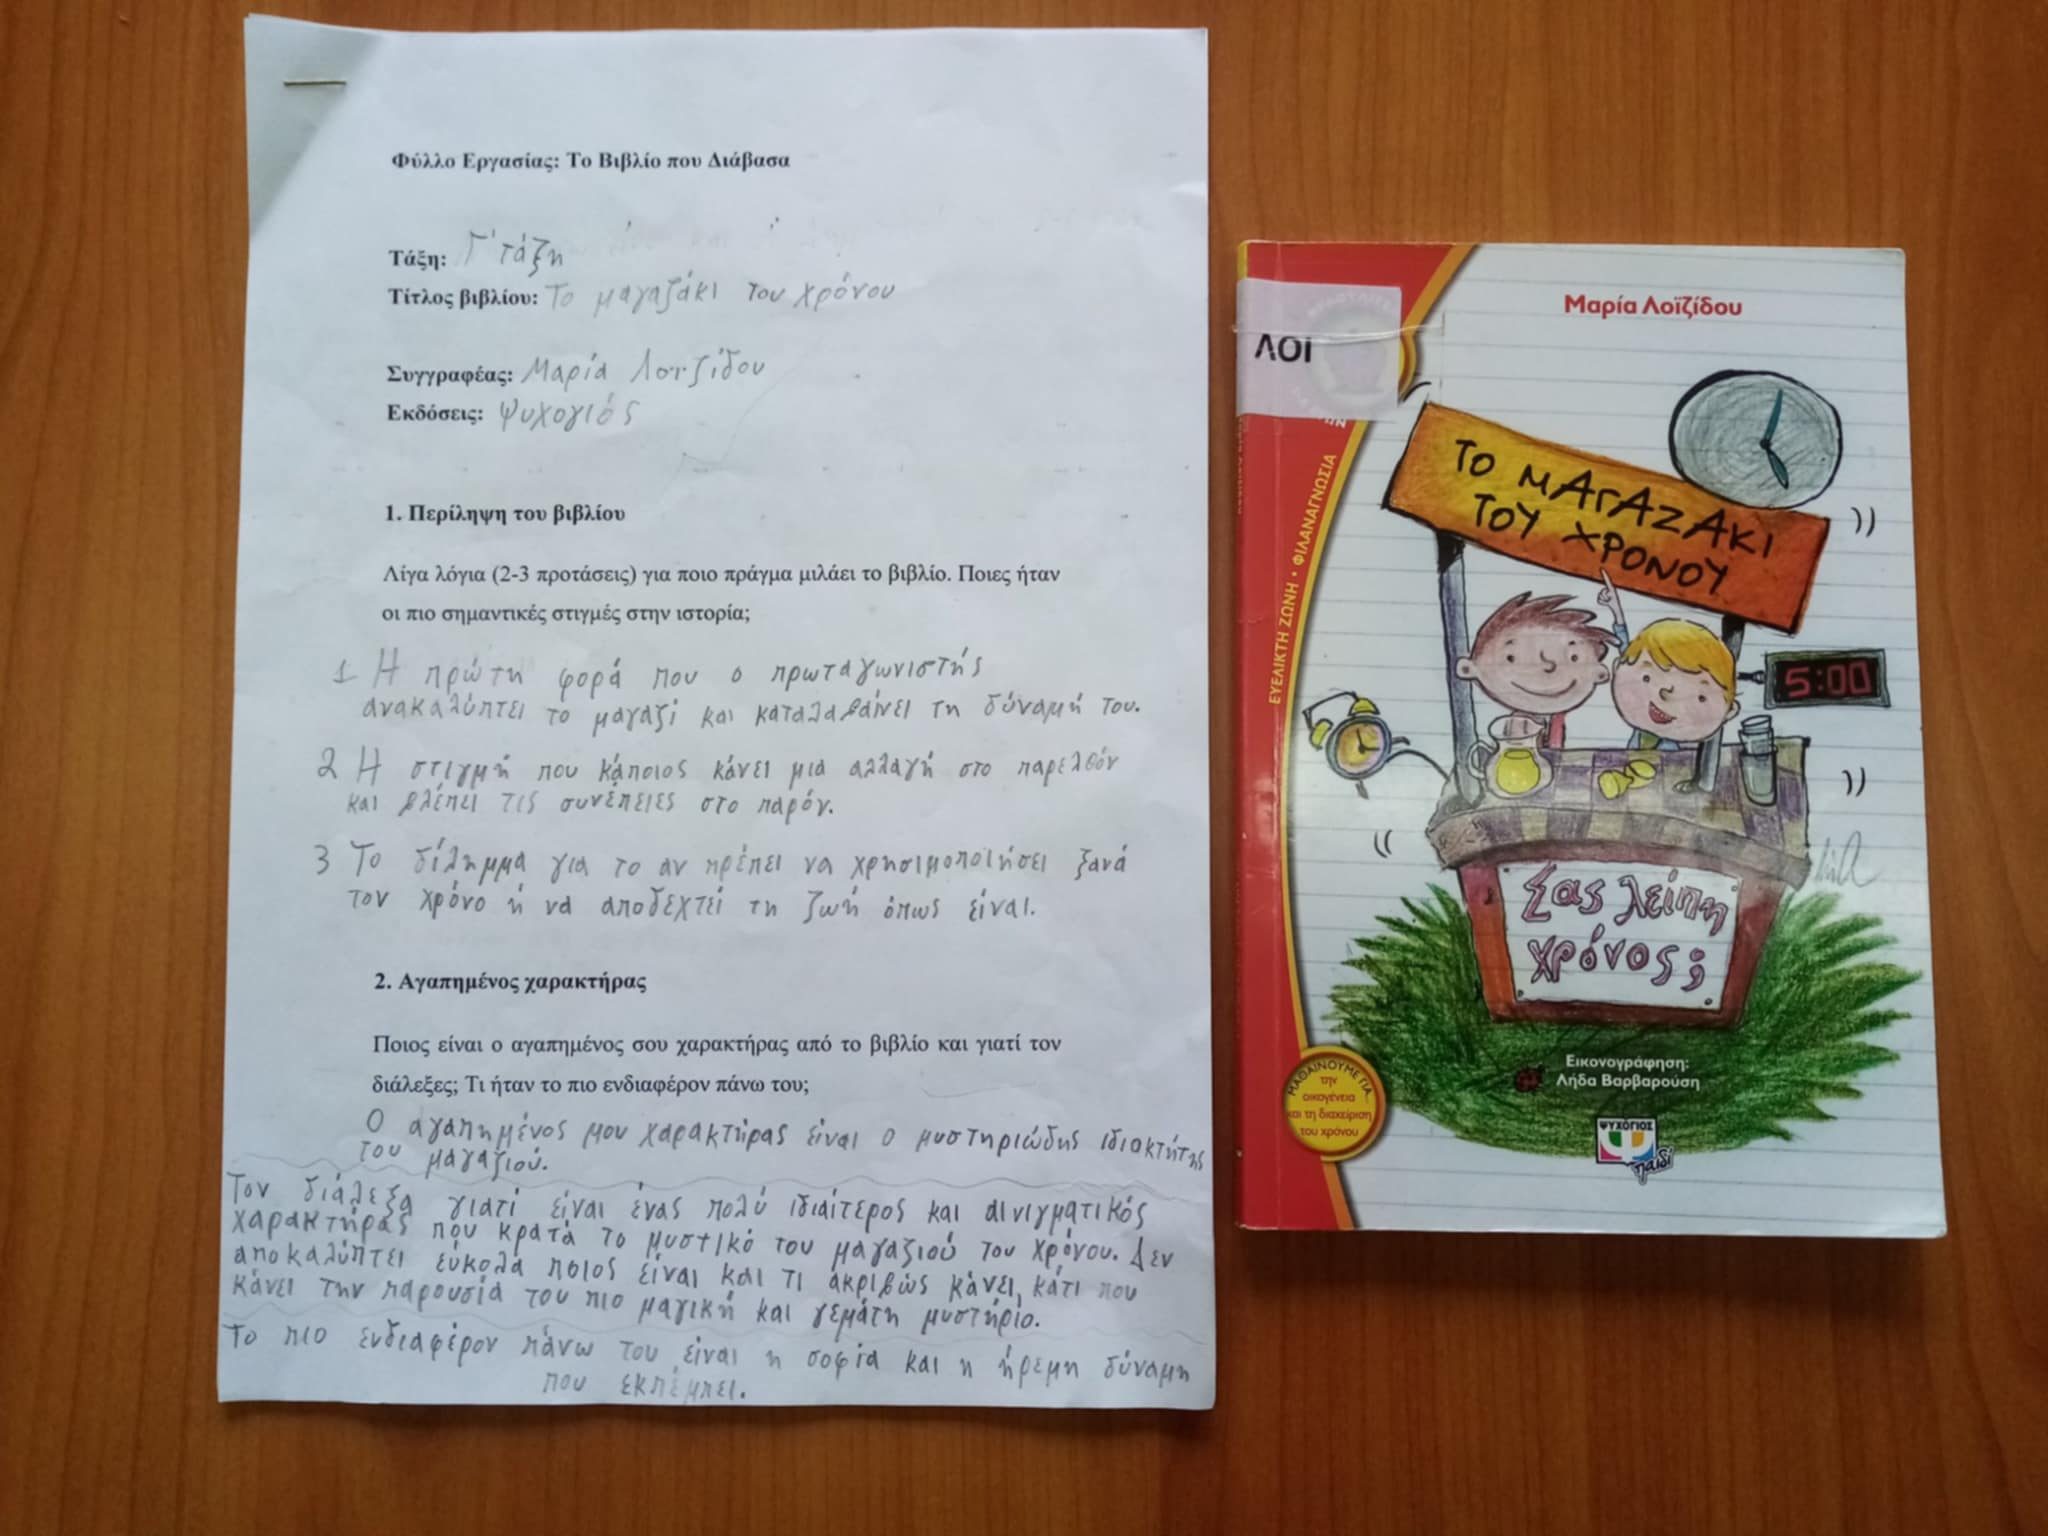 Φύλλο Εργασίας: Το Βιβλίο που Διάβασα
Τάξη: Γ' τάξη
Τίτλος βιβλίου: Το μαγαζάκι του χρόνου
Συγγραφέας: Μαρία Λοϊζίδου
Εκδόσεις: Ψυχογιός
1. Περίληψη του βιβλίου
Λίγα λόγια (2-3 προτάσεις) για ποιο πράγμα μιλάει το βιβλίο. Ποιες ήταν
οι πιο σημαντικές στιγμές στην ιστορία;
1 Η πρώτη φορά που ο πρωταγωνιστής
ανακαλύπτει το μαγαζί και καταλαβαίνει τη δύναμή του.
2 Η στιγμή που κάποιος κάνει μια αλλαγή στο παρελθόν
και βλέπει τις συνέπειες στο παρόν.
3 Το δίλημμα για το αν πρέπει να χρησιμοποιήσει ξανά
τον χρόνο ή να αποδεχτεί τη ζωή όπως είναι.
2. Αγαπημένος χαρακτήρας
Ποιος είναι ο αγαπημένος σου χαρακτήρας από το βιβλίο και γιατί τον
διάλεξες; Τι ήταν το πιο ενδιαφέρον πάνω του;
Ο αγαπημένος μου χαρακτήρας είναι ο μυστηριώδης ιδιοκτήτης
του μαγαζιού.
Τον διάλεξα γιατί είναι ένας πολύ ιδιαίτερος και αινιγματικός
χαρακτήρας που κρατά το μυστικό του μαγαζιού του χρόνου. Δεν
αποκαλύπτει εύκολα ποιος είναι και τι ακριβώς κάνει, κάτι που
κάνει την παρουσία του πιο μαγική και γεμάτη μυστήριο.
Το πιο ενδιαφέρον πάνω του είναι η σοφία και η ήρεμη δύναμη
που εκπέμπει.
Μαρία Λοϊζίδου
ΛΟΙ
ΤΟ ΜΑΓΑΖΑΚΙ
ΤΟΥ ΧΡΟΝΟΥ
ΕΥΕΛΙΚΤΗ ΖΩΝΗ • ΦΙΛΑΝΑΓΝΩΣΙΑ
5:00
Σας λείπη
χρόνος;
Εικονογράφηση:
Λήδα Βαρβαρούση
ΜΑΘΑΙΝΟΥΜΕ ΓΙΑ...
την
οικογένεια
και τη διαχείριση
του χρόνου
ΨΥΧΟΓΙΟΣ
παιδί